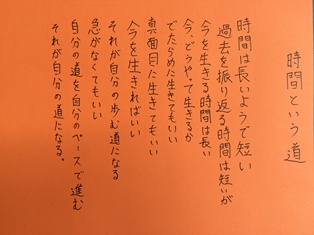 時間という道
時間は長いようで短い
過去を振り返る時間は短いが
今を生きる時間は長い
今、どうやって生きるか
でたらめに生きてもいい
真面目に生きてもいい
今を生きればいい
それが自分の歩む道になる
急がなくてもいい
自分の道を自分のペースで進む
それが自分の道になる。